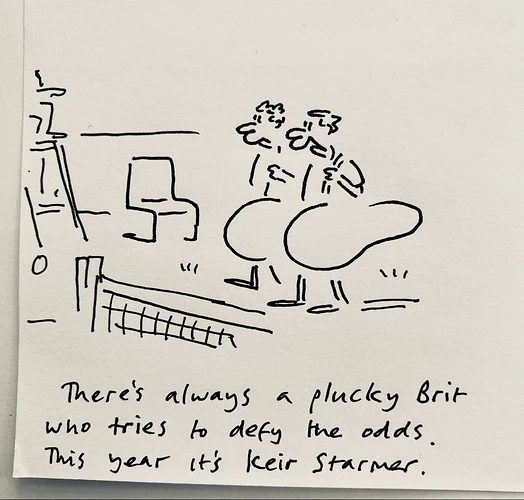 There's always a plucky Brit
who tries to defy the odds.
This year it's Keir Starmer.